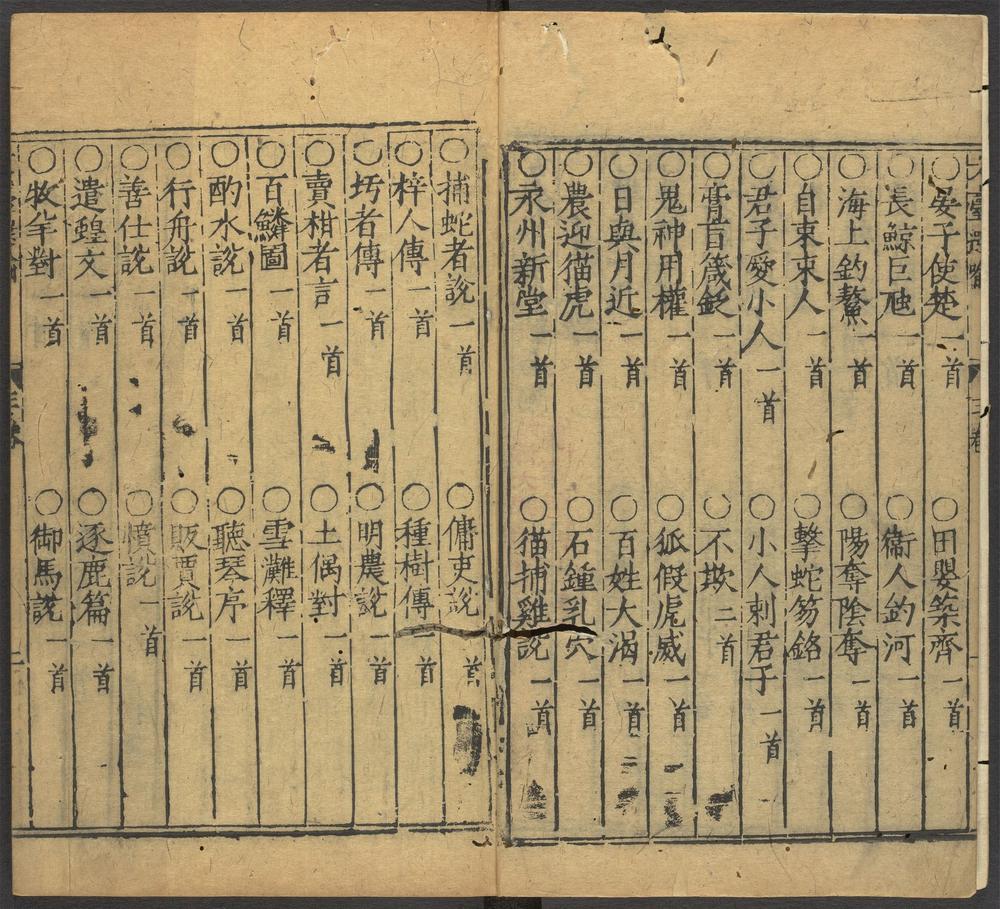 ○晏子使楚一首 ○田嬰築齊一首
○長鯨巨虺一首 ○衛人釣河一首
○海上釣鰲一首 ○陽奪陰奪一首
○自東東人一首 ○擊蛇笏銘一首
○君子愛小人一首 ○小人刺君子一首
○膏盲箴砭一首 ○不欺二首
○鬼神用權一首 ○狐假虎威一首
○日與月近一首 ○百姓大渴一首
○農迎猫虎一首 ○石鍾乳穴一首
○永州新堂一首 ○猫捕雞説一首
三卷
○捕蛇者説一首 ○傭吏説一首
○梓人傳一首 ○種樹傳一首
○圬者傳一首 ○明農説一首
○賣柑者言一首 ○土偶對一首
○百鱗圖一首 ○雪灘釋一首
○酌水説一首 ○聽琴序一首
○行舟説一首 ○販賈説一首
○善仕説一首 ○憤説一首
○遣蝗文一首 ○逐鹿篇一首
○牧羊對一首 ○御馬説一首